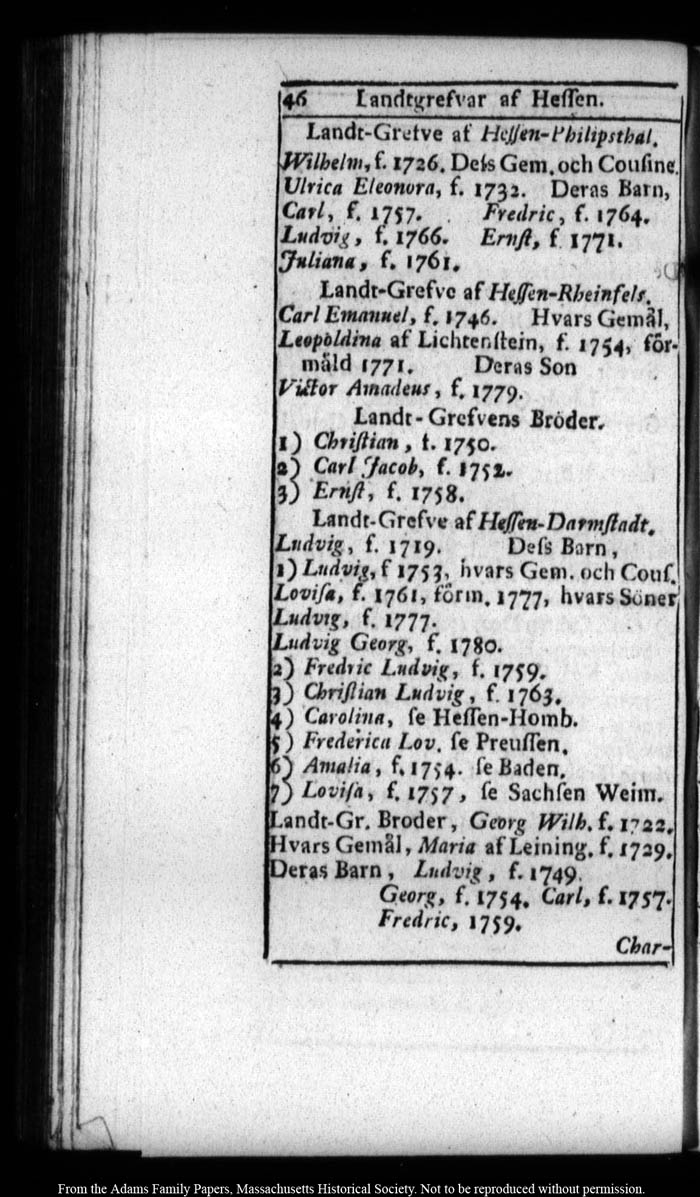 46 Landtgrefvar af Heſſen.
Landt-Grefve af Heſſen-Philipsthal.
Wilhelm, f. 1726. Deſs Gem. och Couſine.
Ulrica Eleonora, f. 1732. Deras Barn,
Carl, f. 1757. Fredric, f. 1764.
Ludvig, f. 1766. Ernſt, f. 1771.
Juliana, f. 1761.
Landt-Grefve af Heſſen-Rheinfels.
Carl Emanuel, f. 1746. Hvars Gemål,
Leopoldina af Lichtenſtein, f. 1754, för-
mäld 1771. Deras Son
Victor Amadeus, f. 1779.
Landt-Grefvens Bröder.
1) Chriſtian, f. 1750.
2) Carl Jacob, f. 1752.
3) Ernſt, f. 1758.
Landt-Grefve af Heſſen-Darmſtadt.
Ludvig, f. 1719. Deſs Barn,
1) Ludvig, f 1753, hvars Gem. och Couſ.
Loviſa, f. 1761, förm. 1777, hvars Söner
Ludvig, f. 1777.
Ludvig Georg, f. 1780.
2) Fredric Ludvig, f. 1759.
3) Chriſtian Ludvig, f. 1763.
4) Carolina, ſe Heſſen-Homb.
5) Frederica Lov. ſe Preuſſen.
6) Amalia, f. 1754. ſe Baden.
7) Loviſa, f. 1757, ſe Sachſen Weim.
Landt-Gr. Broder, Georg Wilh. f. 1722.
Hvars Gemål, Maria af Leining. f. 1729.
Deras Barn, Ludvig, f. 1749.
Georg, f. 1754. Carl, f. 1757.
Fredric, 1759.
Char-
From the Adams Family Papers, Massachusetts Historical Society. Not to be reproduced without permission.